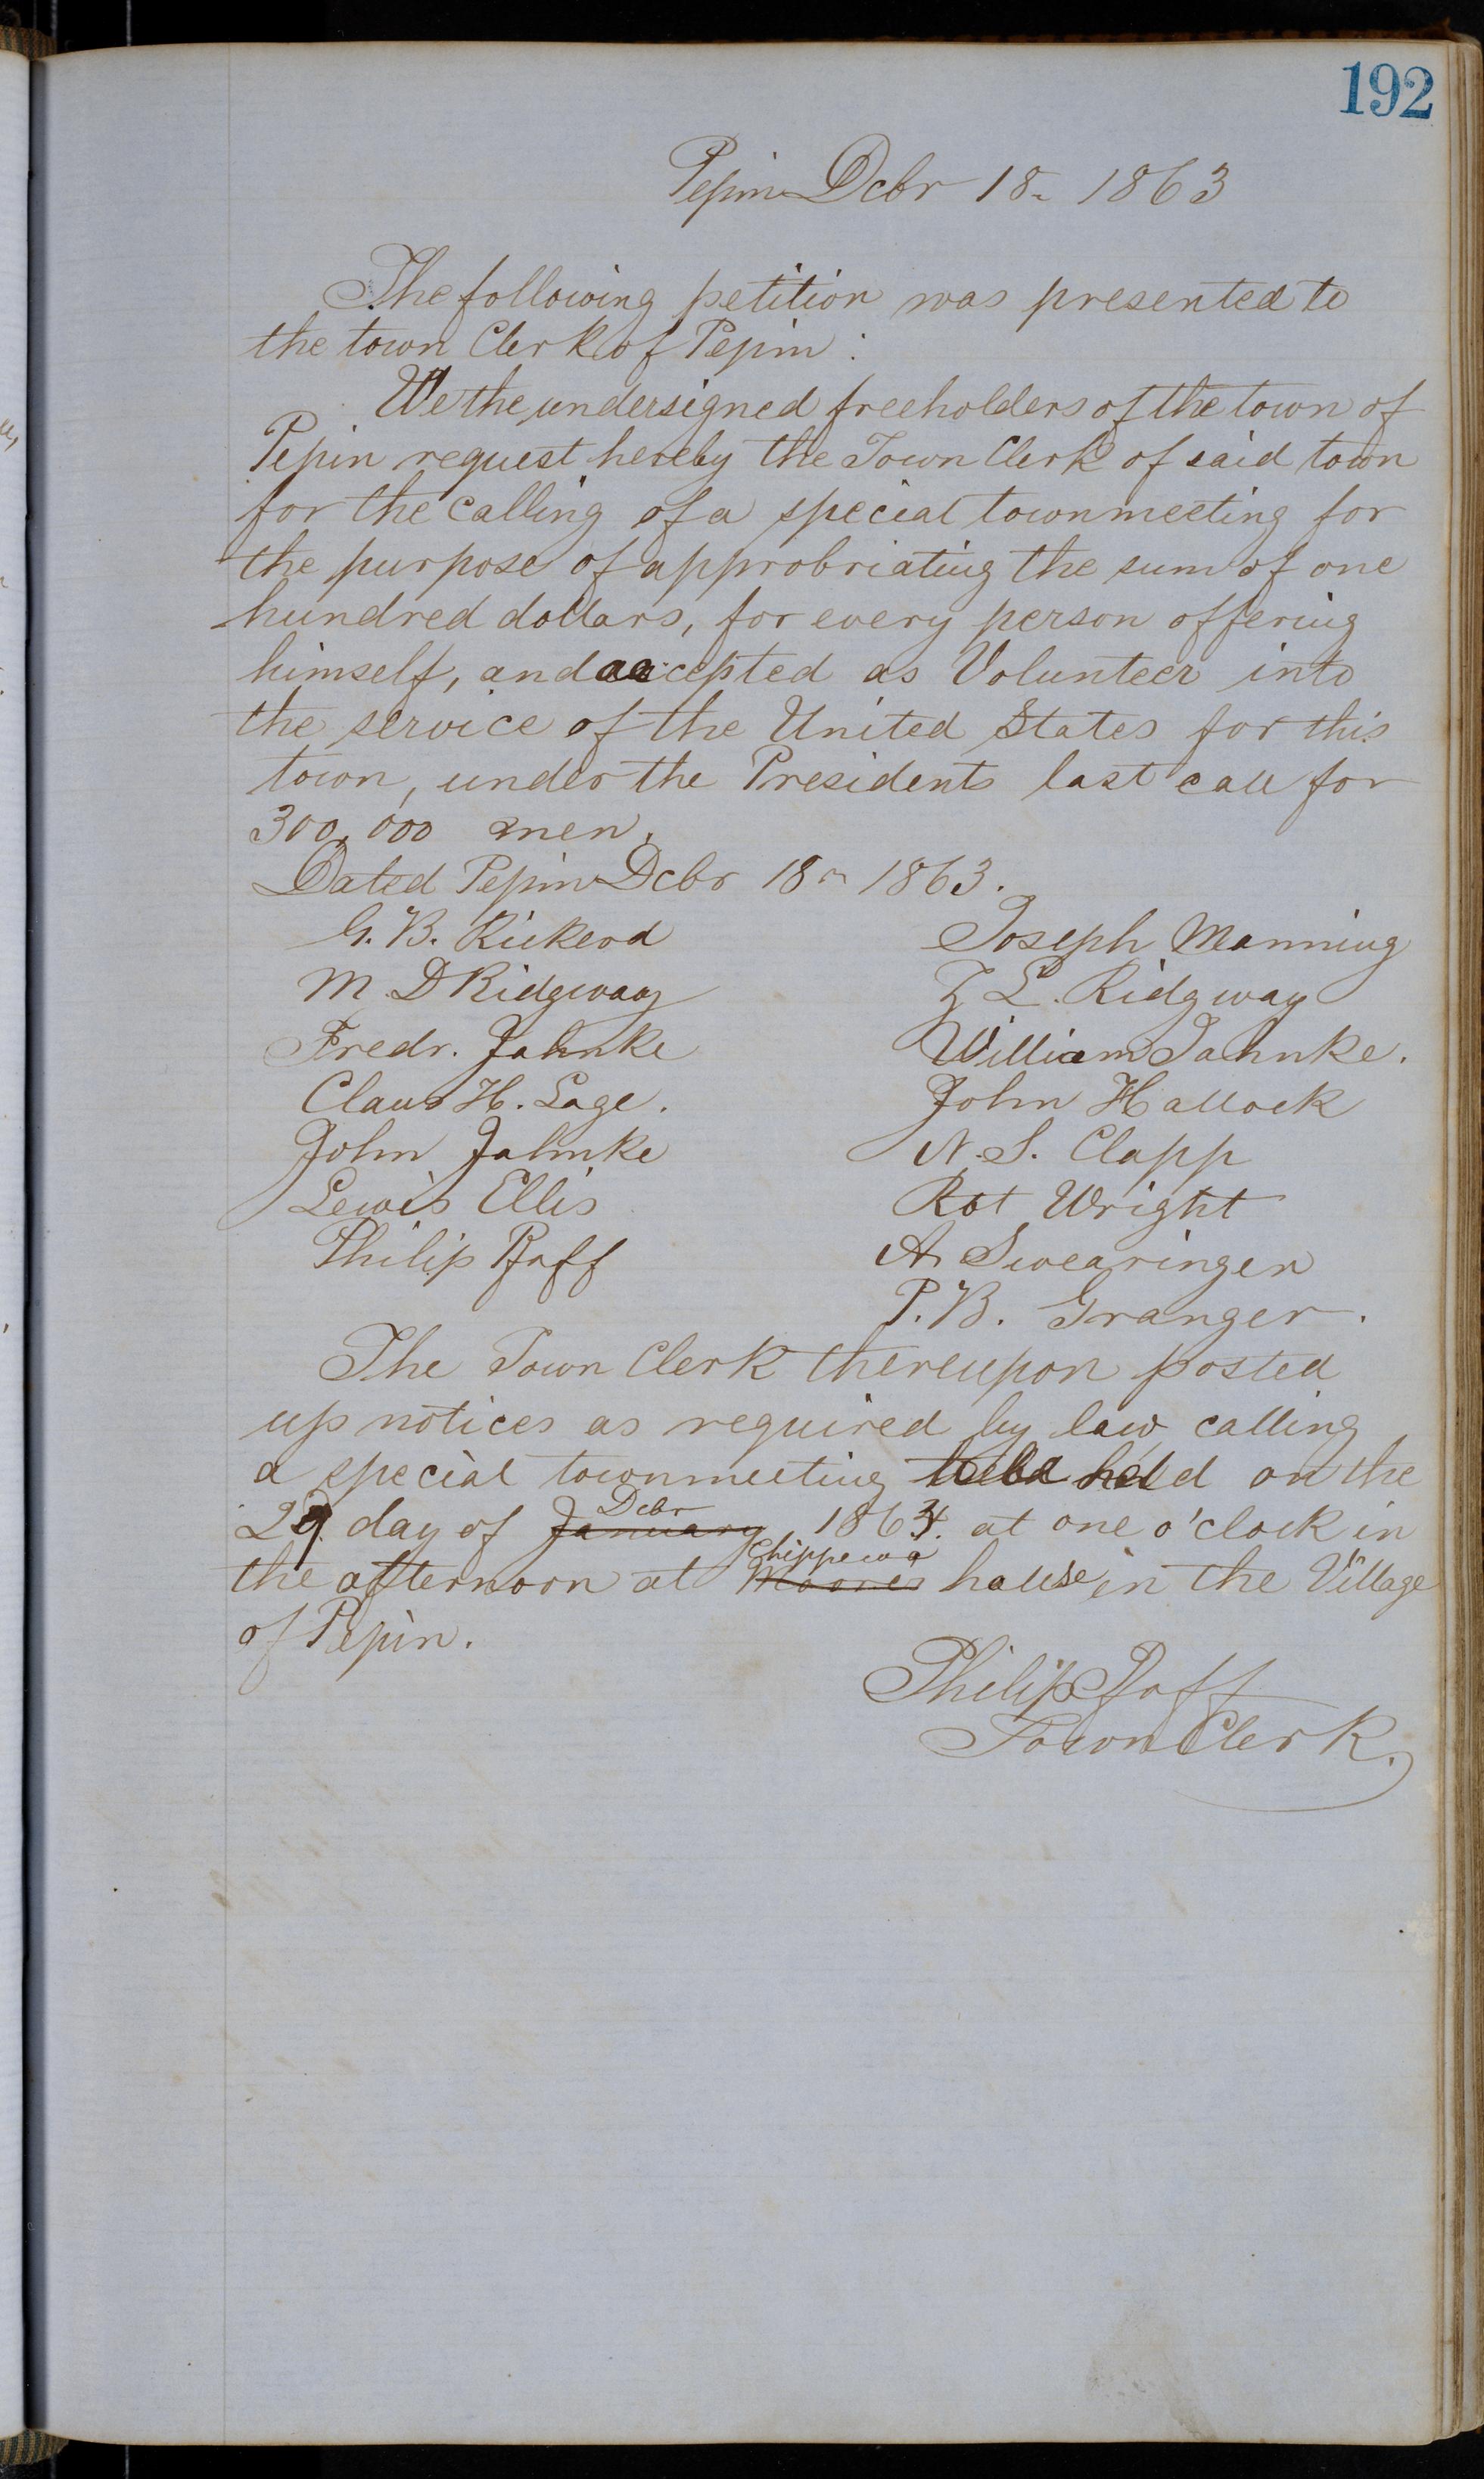 192
Pepin Dcbr 18. 1863
The following petition was presented to
the town Clerk of Pepin:
We the undersigned freeholders of the town of
Pepin request hereby the Town Clerk of said town
for the calling of a special townmeeting for
the purpose of approbriating the sum of one
hundred dollars, for every person offering
himself, and accepted as Volunteer into
the service of the United States for this
town, under the Presidents last call for
300,000 men.
Dated Pepin Dcbr 18th 1863.
G. B. Rickerd Joseph Manning
M. D Ridgway Z L. Ridgway
Fredr. Jahnke William Jahnke.
Claus H. Lage. John Hallock
John Jahnke N. S. Clapp
Lewis Ellis Rot Wright
Philip Pfaff A. Swearingen
P. B. Granger.
The Town Clerk thereupon posted
up notices as required by law calling
a special townmeeting held on the
Dcbr
29 day of January 1863. at one o'clock in
Chippewa
the afternoon at Moores house in the Village
of Pepin.
Philip Pfaff
Town Clerk.